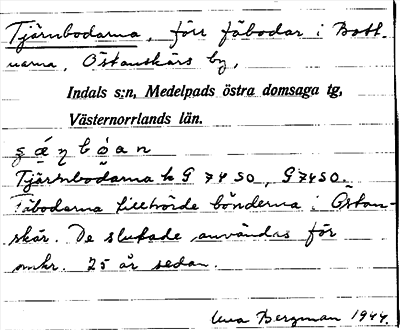 Tjärnbodarna, förr fäbodar i Bott-
narna, Östanskärs by,
Indals s:n, Medelpads östra domsaga tg,
Västernorrlands län.
Tjärnbodarna h G 7450, G7450.
Fäbodarna tillhörde bönderna i Östan-
skär. De slutade användas för
omkr. 75 år sedan.
Bergman 1944.